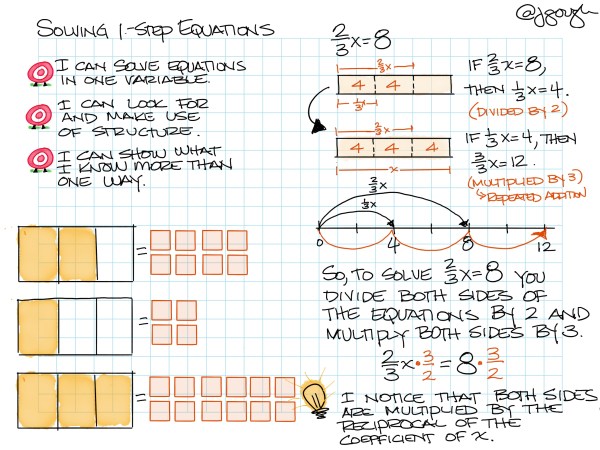 @jgough
SOLVING 1-STEP EQUATIONS
I CAN SOLVE EQUATIONS
IN ONE VARIABLE.
I CAN LOOK FOR
AND MAKE USE
OF STRUCTURE.
I CAN SHOW WHAT
I KNOW MORE THAN
ONE WAY.
=
=
=
2/3x=8
2/3x
4 4
1/3x
IF 2/3x=8,
THEN 1/3x=4.
(DIVIDED BY 2)
2/3x
4 4 4
x
IF 1/3x=4, THEN
3/3x=12.
(MULTIPLIED BY 3)
↳REPEATED ADDITION
2/3x
1/3x
0 4 8 12
SO, TO SOLVE 2/3x=8 YOU
DIVIDE BOTH SIDES OF
THE EQUATIONS BY 2 AND
MULTIPLY BOTH SIDES BY 3.
2/3x•3/2=8•3/2
I NOTICE THAT BOTH SIDES
ARE MULTIPLIED BY THE
RECIPROCAL OF THE
COEFFICIENT OF X.